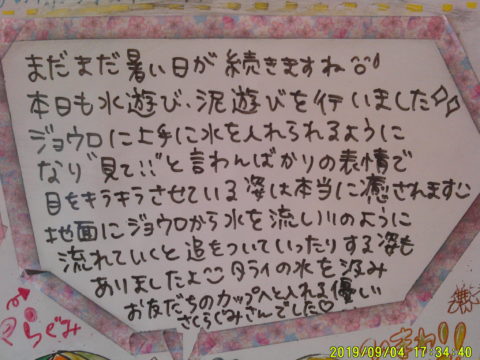 まだまだ暑い日が続きますね
本日も水遊び、泥遊びを行いました
ジョウロに上手に水を入れられるように
なり"見て!!"と言わんばかりの表情で
目をキラキラさせている姿は本当に癒されます
地面にジョウロから水を流し川のように
流れていくと追をついていったりする姿も
ありましたよ タライの水を汲み
お友だちのカップへと入れる優しい
さくらぐみさんでした♡
さくらぐみ
2019/09/04 17:34:40